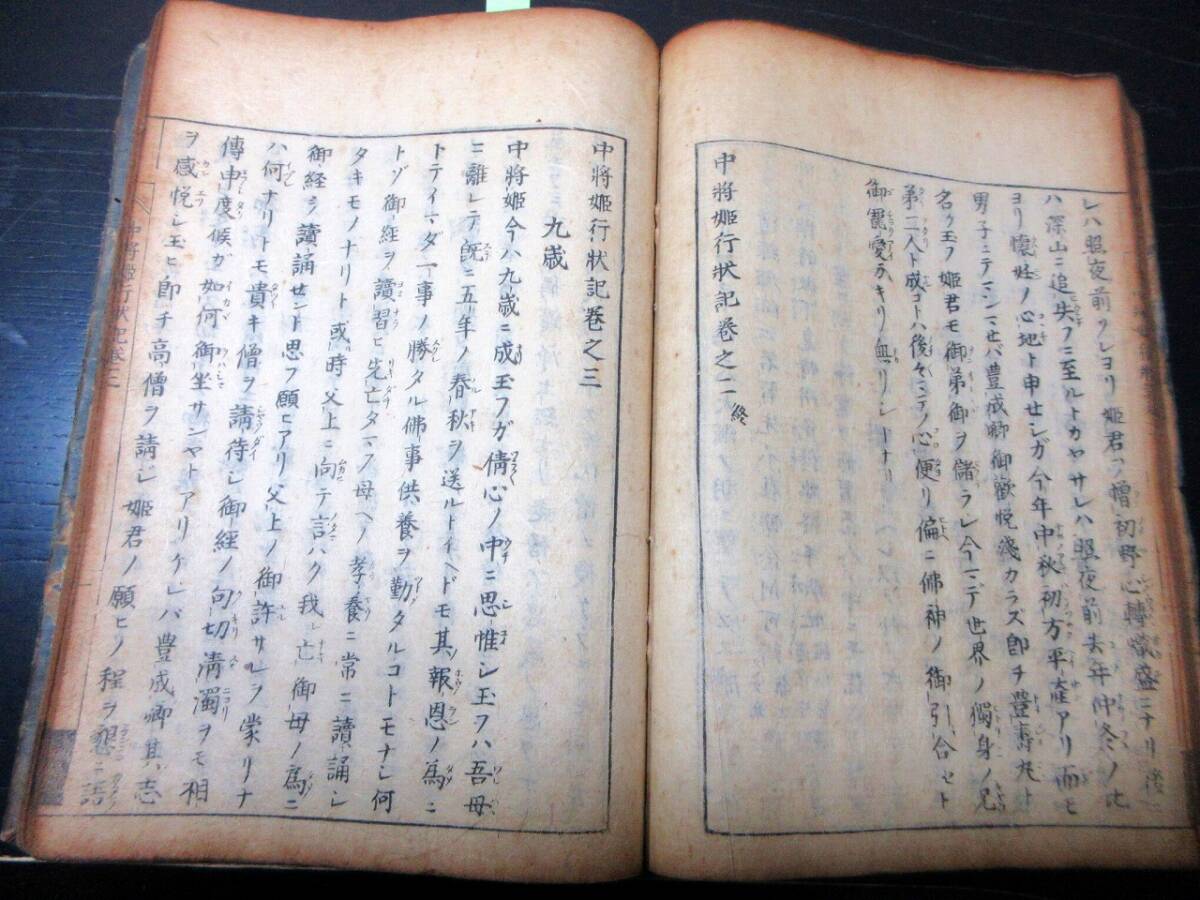 レハ照夜前ヲシヨリ姫君ヲ憎初野心轉熾盛ニナリ後ニ
ハ深山ニ追失フニ至ルトカヤサレハ照夜前去年仲冬ノ比
ヨリ懐妊ノ心地ト申セシガ今年中秋初方平産アリ而モ
男子ニテマシマセバ豊成卿御歓悦浅カラズ即チ豊壽丸ト
名ケ玉フ姫君モ御弟御ヲ儲ラレ今マデ世界ノ獨身ノ兄
弟二人ト成コトハ後々マデノ心便リ偏ニ佛神ノ御引合セト
御寵愛カキリ無リシトナリ
中將姫行狀記卷之二終
中將姫行狀記卷之三
九歳
中將姫今ハ九歳ニ成玉フガ倩心ノ中ニ思惟シ玉フハ吾母
ニ離レテ既ニ五年ノ春秋ヲ送ルトイヘドモ其報恩ノ為ニ
トテイマダ一事ノ勝タル佛事供養ヲ勤タルコトモナシ何
トゾ御経ヲ讀習ヒ先亡タマフ母ヘノ孝養ニ常ニ讀誦シ
タキモノナリト或時父上ニ向テ言ハク我レ亡御母ノ為ニ
御経ヲ讀誦セント思フ願ヒアリ父上ノ御許サレヲ蒙リナ
ハ何ナリトモ貴キ僧ヲ請待シ御経ノ句切清濁ヲモ相
傳申度候ガ如何御坐サンヤトアリケレバ豊成卿其志
ヲ感悦シ玉ヒ即チ高僧ヲ請シ姫君ノ願ヒノ程ヲ懇ニ語
中將姫行狀記卷三